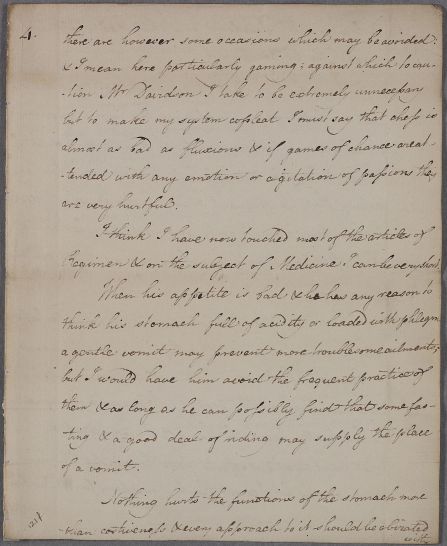 4.
there are however some occasions which may be avoided:
& I mean here particularly gaming; against which to cau-
-tion Mr Davidson I take to be extremely unnecessary
but to make my system compleat I must say that chess is
almost as bad as fluxions & if games of chance are at-
-tended with any emotion or agitation of passions they
are very hurtful.
I think I have now touched most of the articles of
Regimen & on the subject of Medicine I can be very short.
When his appetite is bad & he has any reason to
think his stomach full of acidity or loaded with phlegm
a gentle vomit may prevent more troublesome ailments;
but I would have him avoid the frequent practice of
them & as long as he can possibly find that some fas-
ting & a good deal of riding may supply the place
of a vomit.
Nothing hurts the functions of the stomach more
-than costiveness & every approach to it should be obviated
with